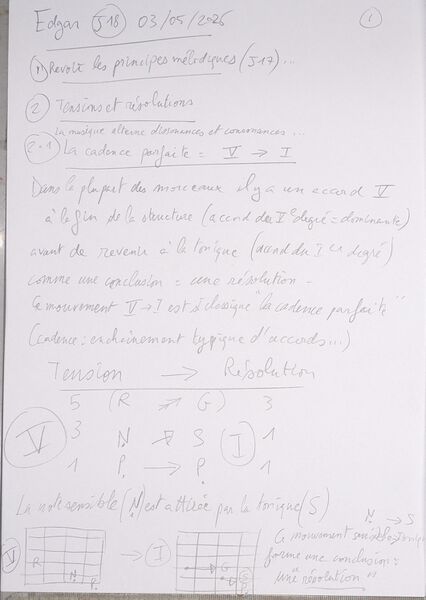 Edgar J18 03/05/2026 1
1) Revoir les principes mélodiques (J17)...
2) Tensions et résolutions
La musique alterne dissonances et consonances...
2.1 La cadence parfaite = V → I
Dans la plupart des morceaux il y a un accord V
à la fin de la structure (accord du Ve degré = dominante)
avant de revenir à la tonique (accord du I er degré)
comme une conclusion = une résolution -
Ce mouvement V→I est si classique "la cadence parfaite"
(cadence: enchaînement typique d'accords...)
Tension → Résolution
5 (R → G) 3
V 3 N → S I 1
1 P → P 1
La note sensible (N) est attirée par la tonique (S)
N → S
Ce mouvement
forme une conclusion:
une "résolution"
V R N P → I G S